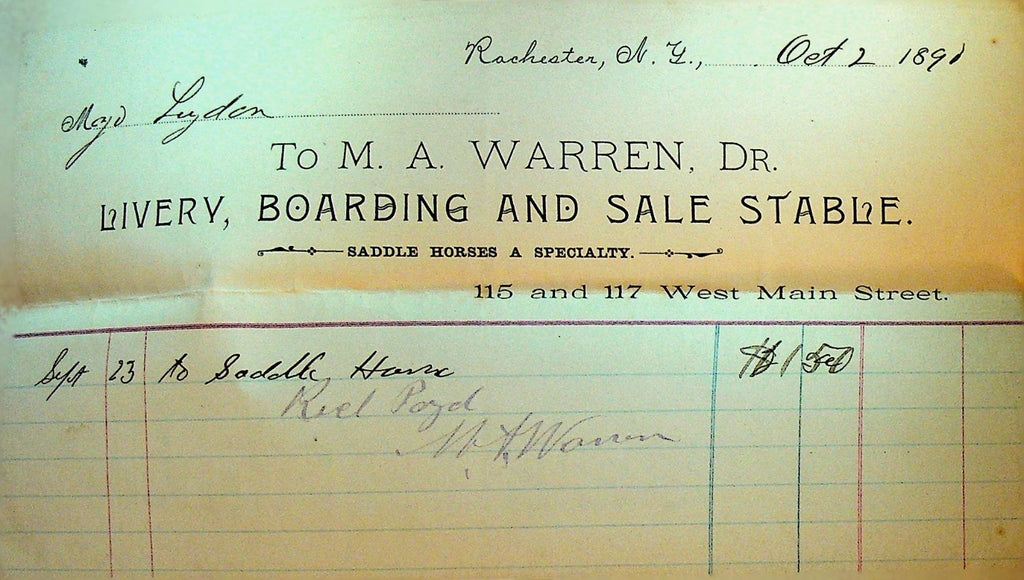 Rochester, N. Y., Oct 2 1891
Lydon
To M. A. WARREN, DR.
LIVERY, BOARDING AND SALE STABLE.
SADDLE HORSES A SPECIALTY.
115 and 117 West Main Street.
Sept 23 to Saddle Horse $1 50
Recd Payd
M A Warren